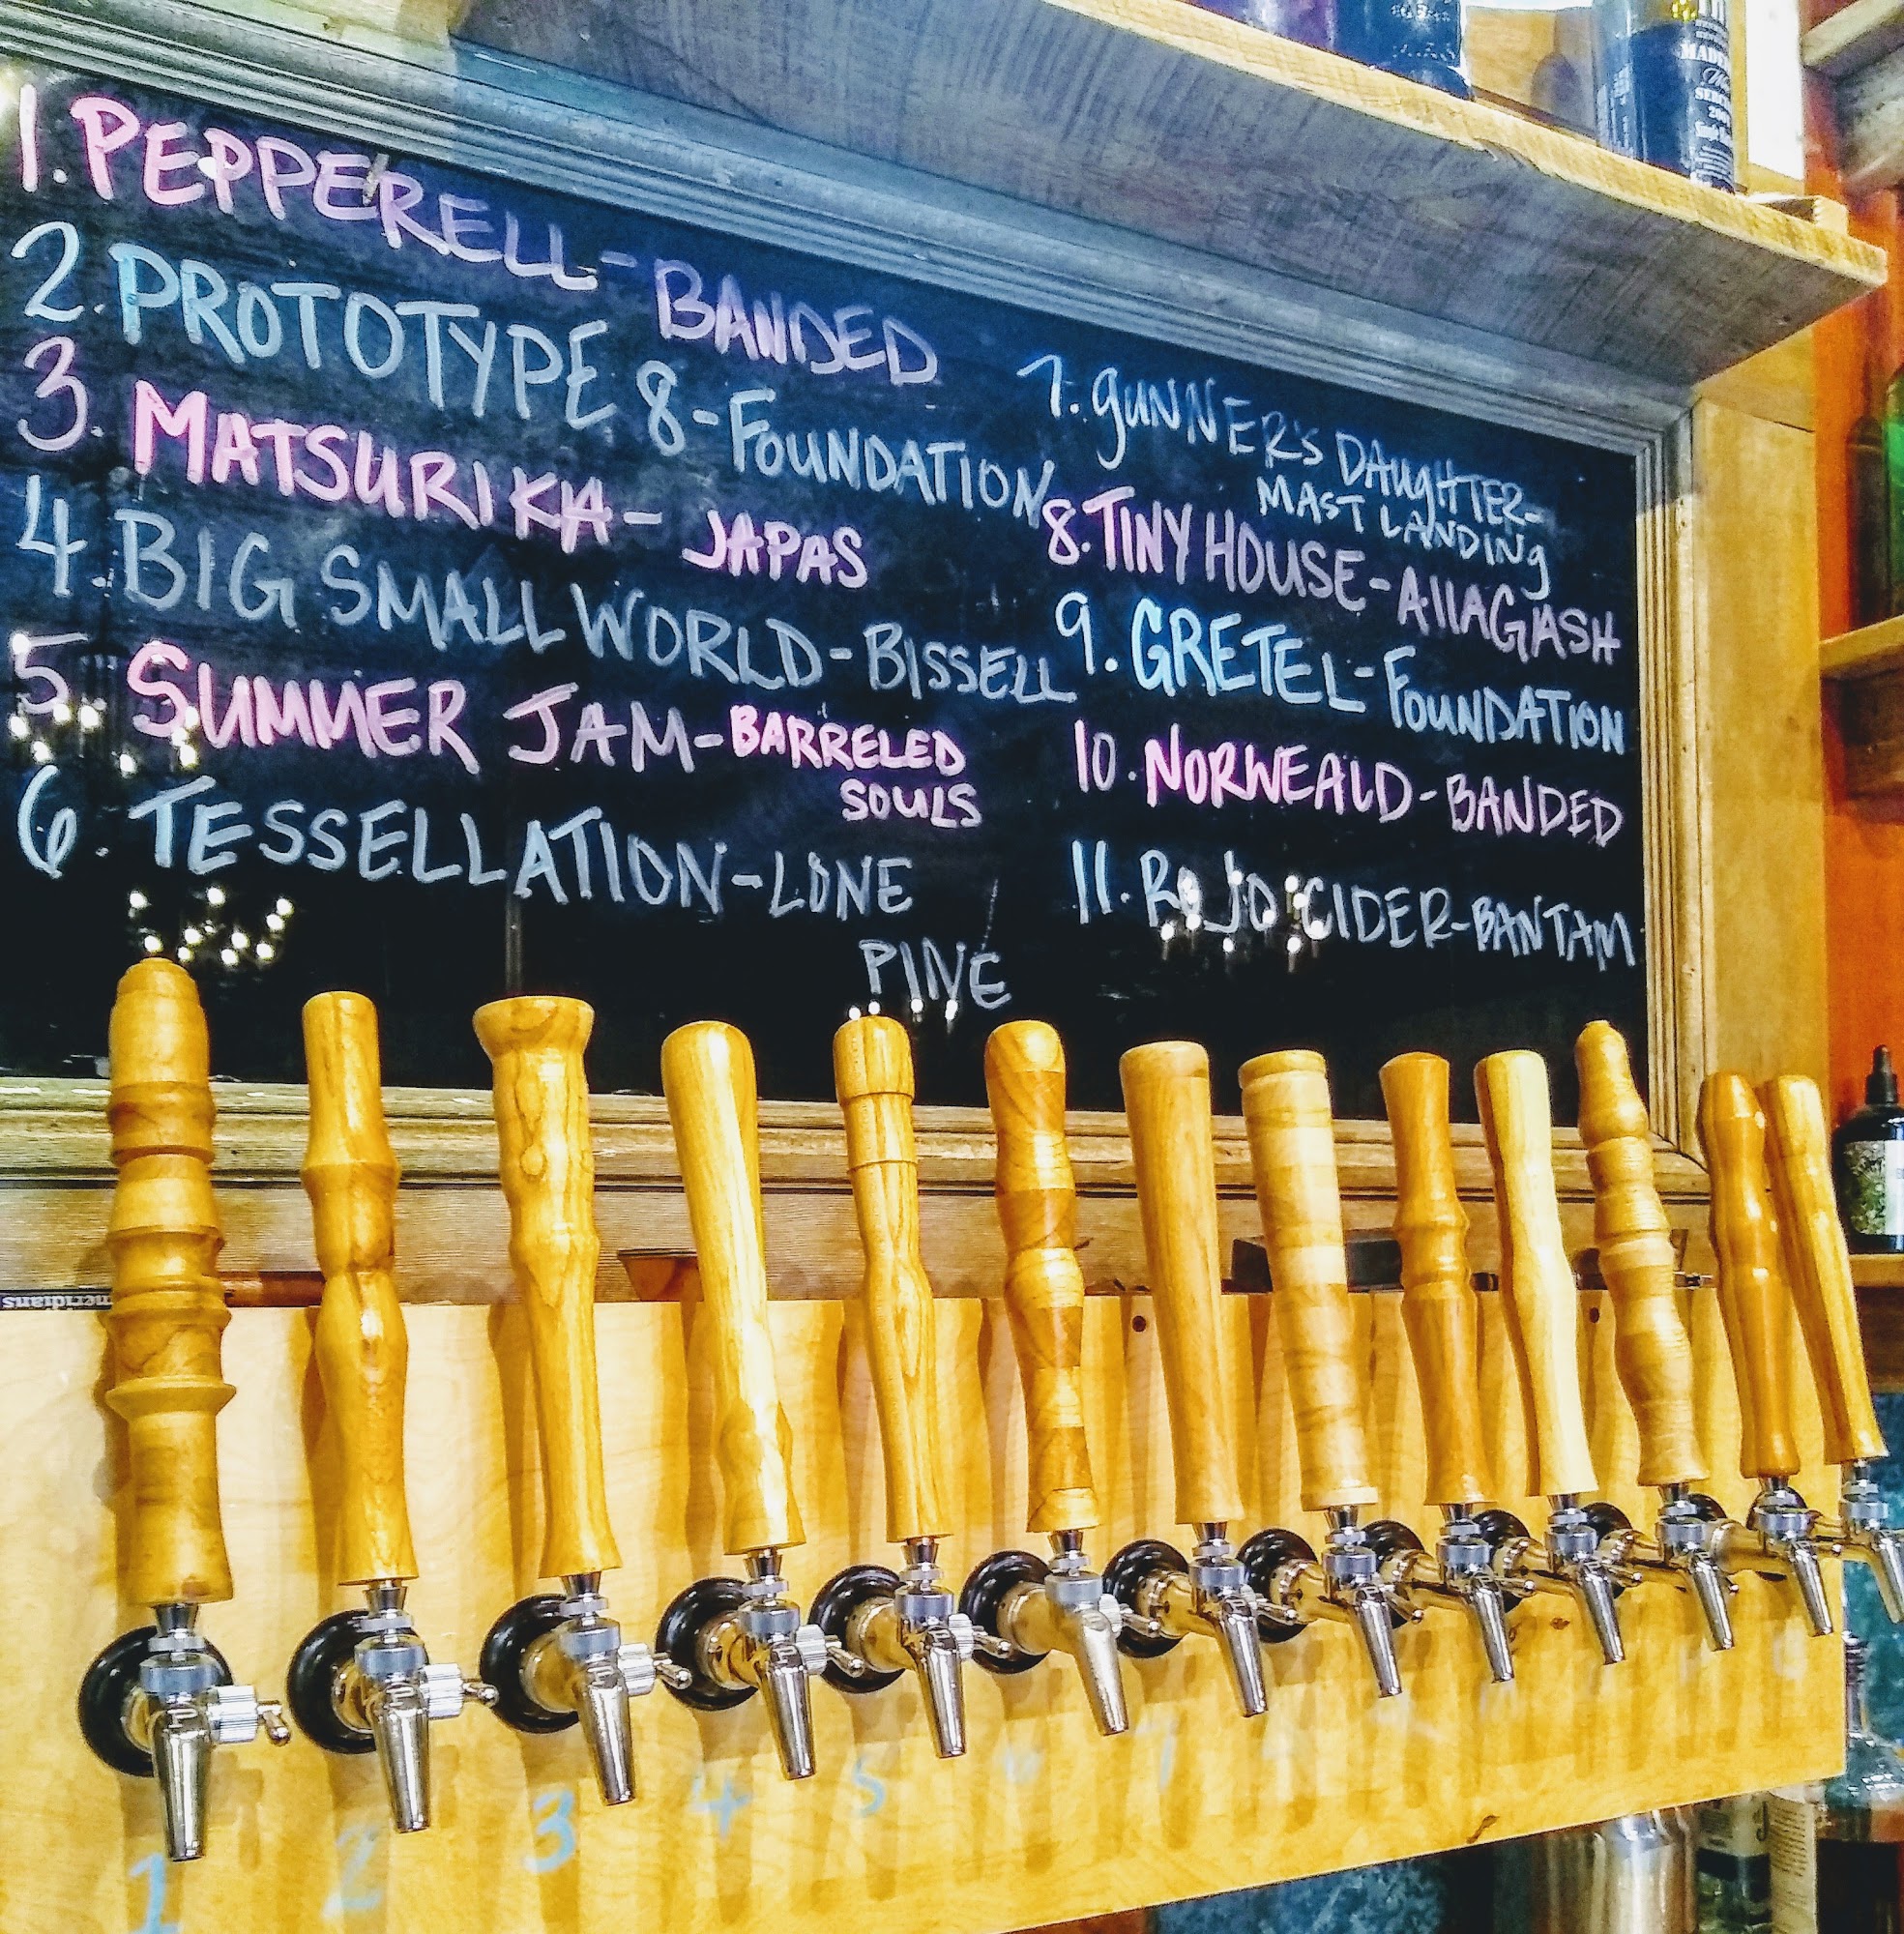 1. PEPPERELL - BANDED
2. PROTOTYPE 8 - FOUNDATION
3. MATSURIKA - JAPAS
4. BIG SMALL WORLD - BISSELL
5. SUMMER JAM - BARRELED
SOULS
6. TESSELLATION - LONE
PINE
7. GUNNER'S DAUGHTER -
MAST LANDING
8. TINY HOUSE - ALLAGASH
9. GRETEL - FOUNDATION
10. NORWEALD - BANDED
11. ROJO CIDER - BANTAM
meridians
1
2
3
4
5
6
7